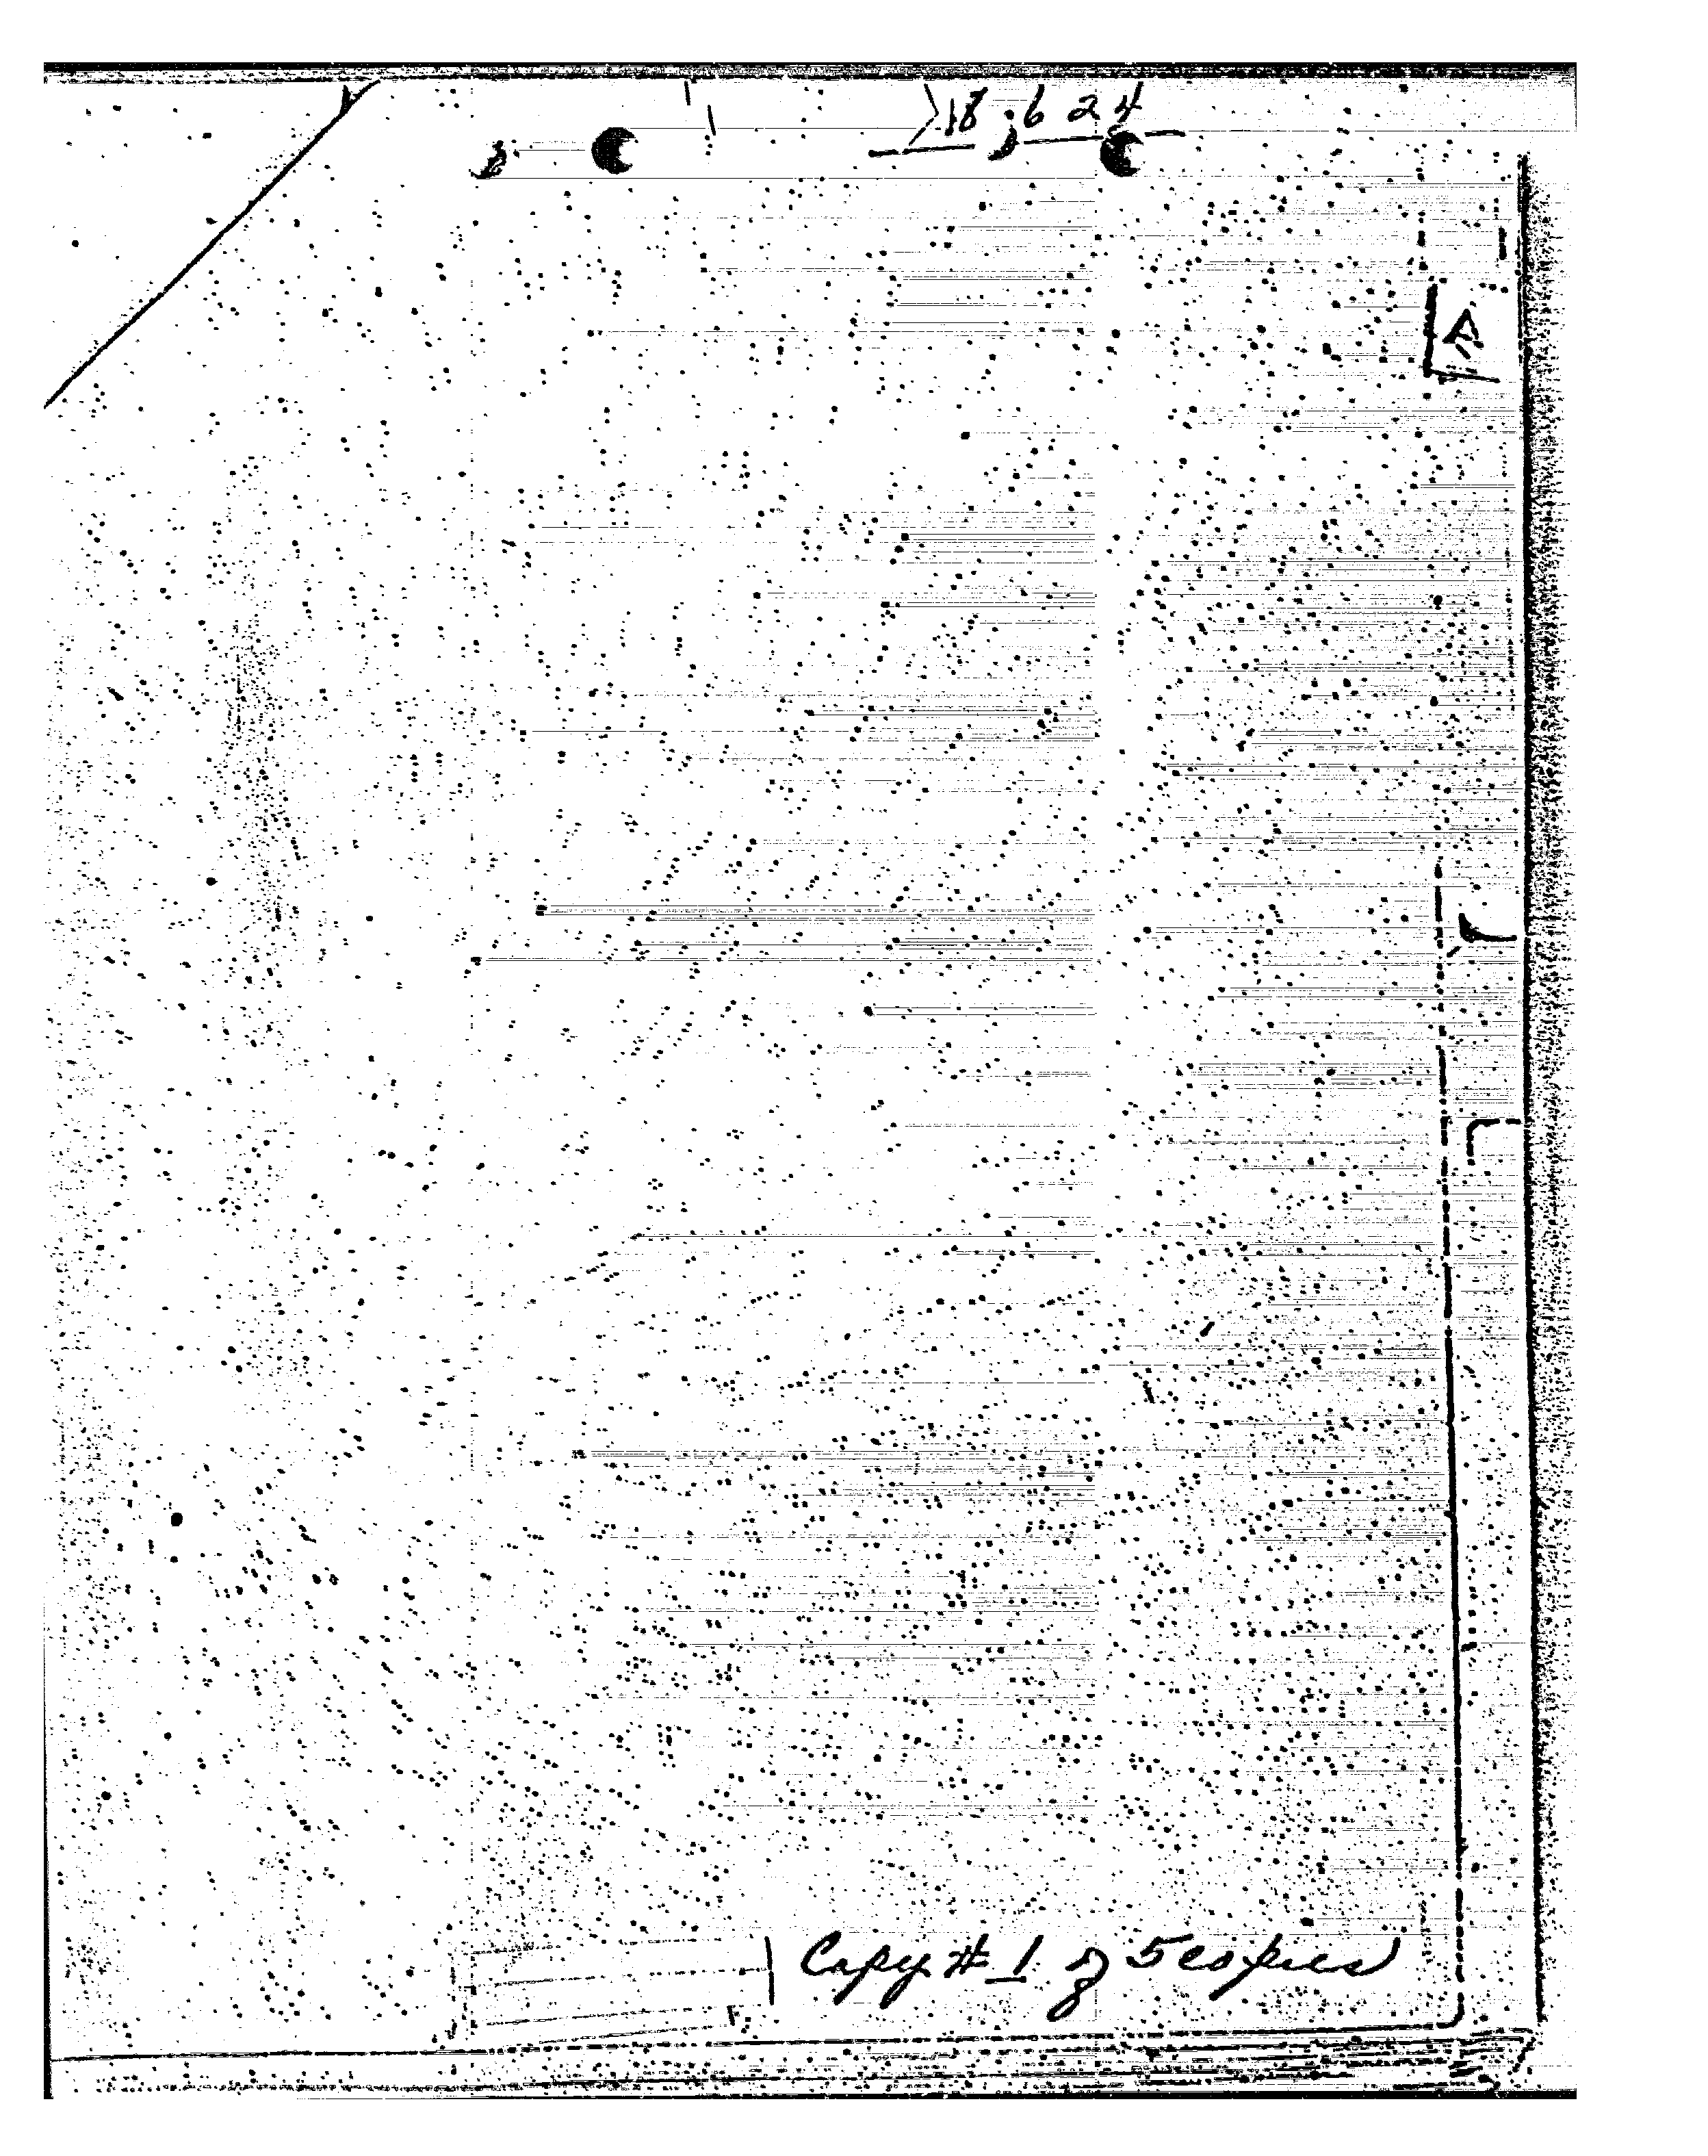 18,624
Copy # 1 of 5 copies